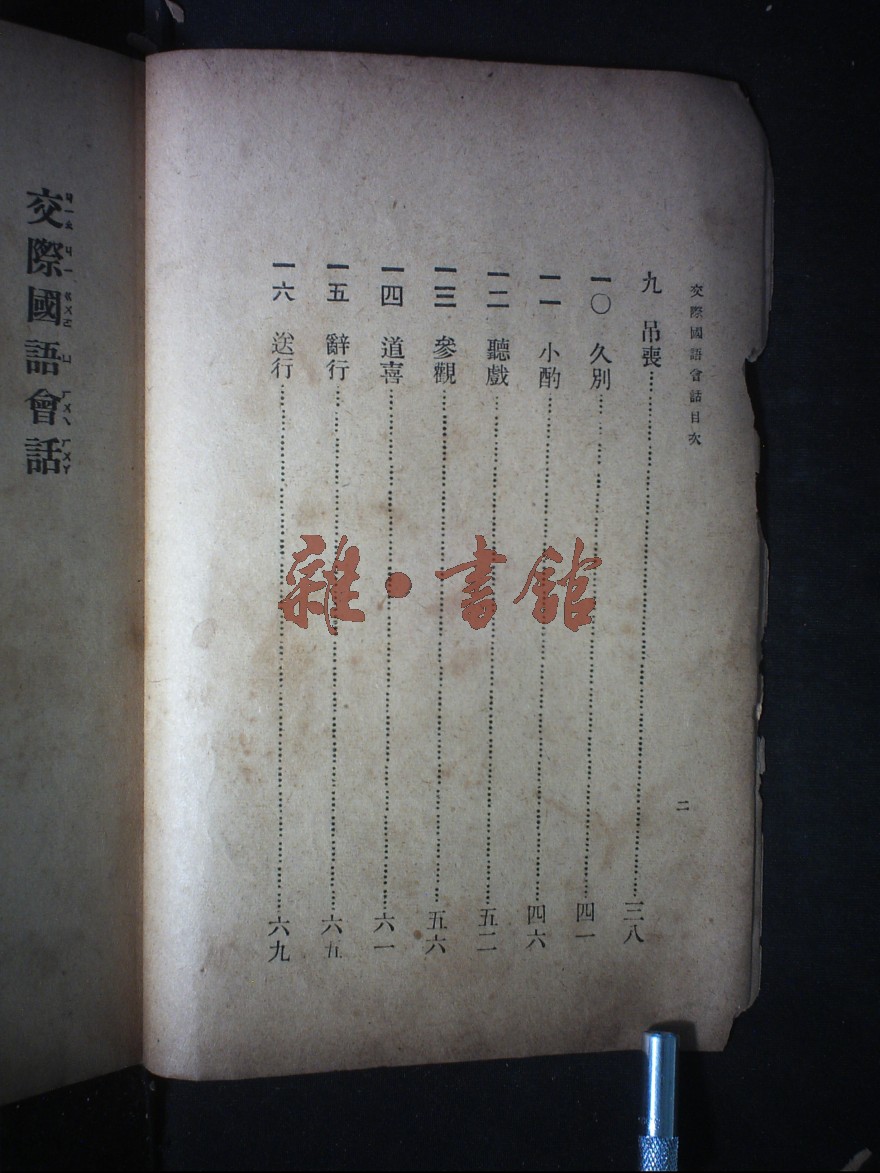 交際國語會話目次
二
九 吊喪……三八
一〇 久別……四一
一一 小酌……四六
一二 聽戲……五二
一三 參觀……五六
一四 道喜……六一
一五 辭行……六五
一六 送行……六九
交際國語會話
ㄐㄧㄠ ㄐㄧ ㄍㄨㄛ ㄩ ㄏㄨㄟ ㄏㄨㄚ
雜·書館